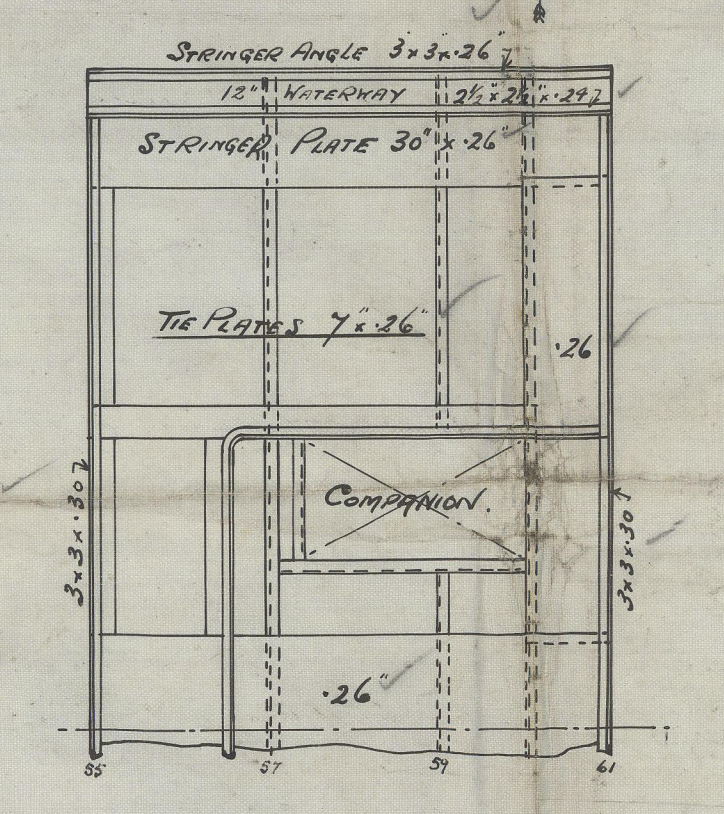 STRINGER ANGLE 3 x 3 x .26"
12" WATERWAY 2½" x 2½" x .29
STRINGER PLATE 30" x .26"
TIE PLATES 7" x .26"
.26
COMPANION.
3 x 3 x .30
3 x 3 x .30
.26"
55 57 59 61